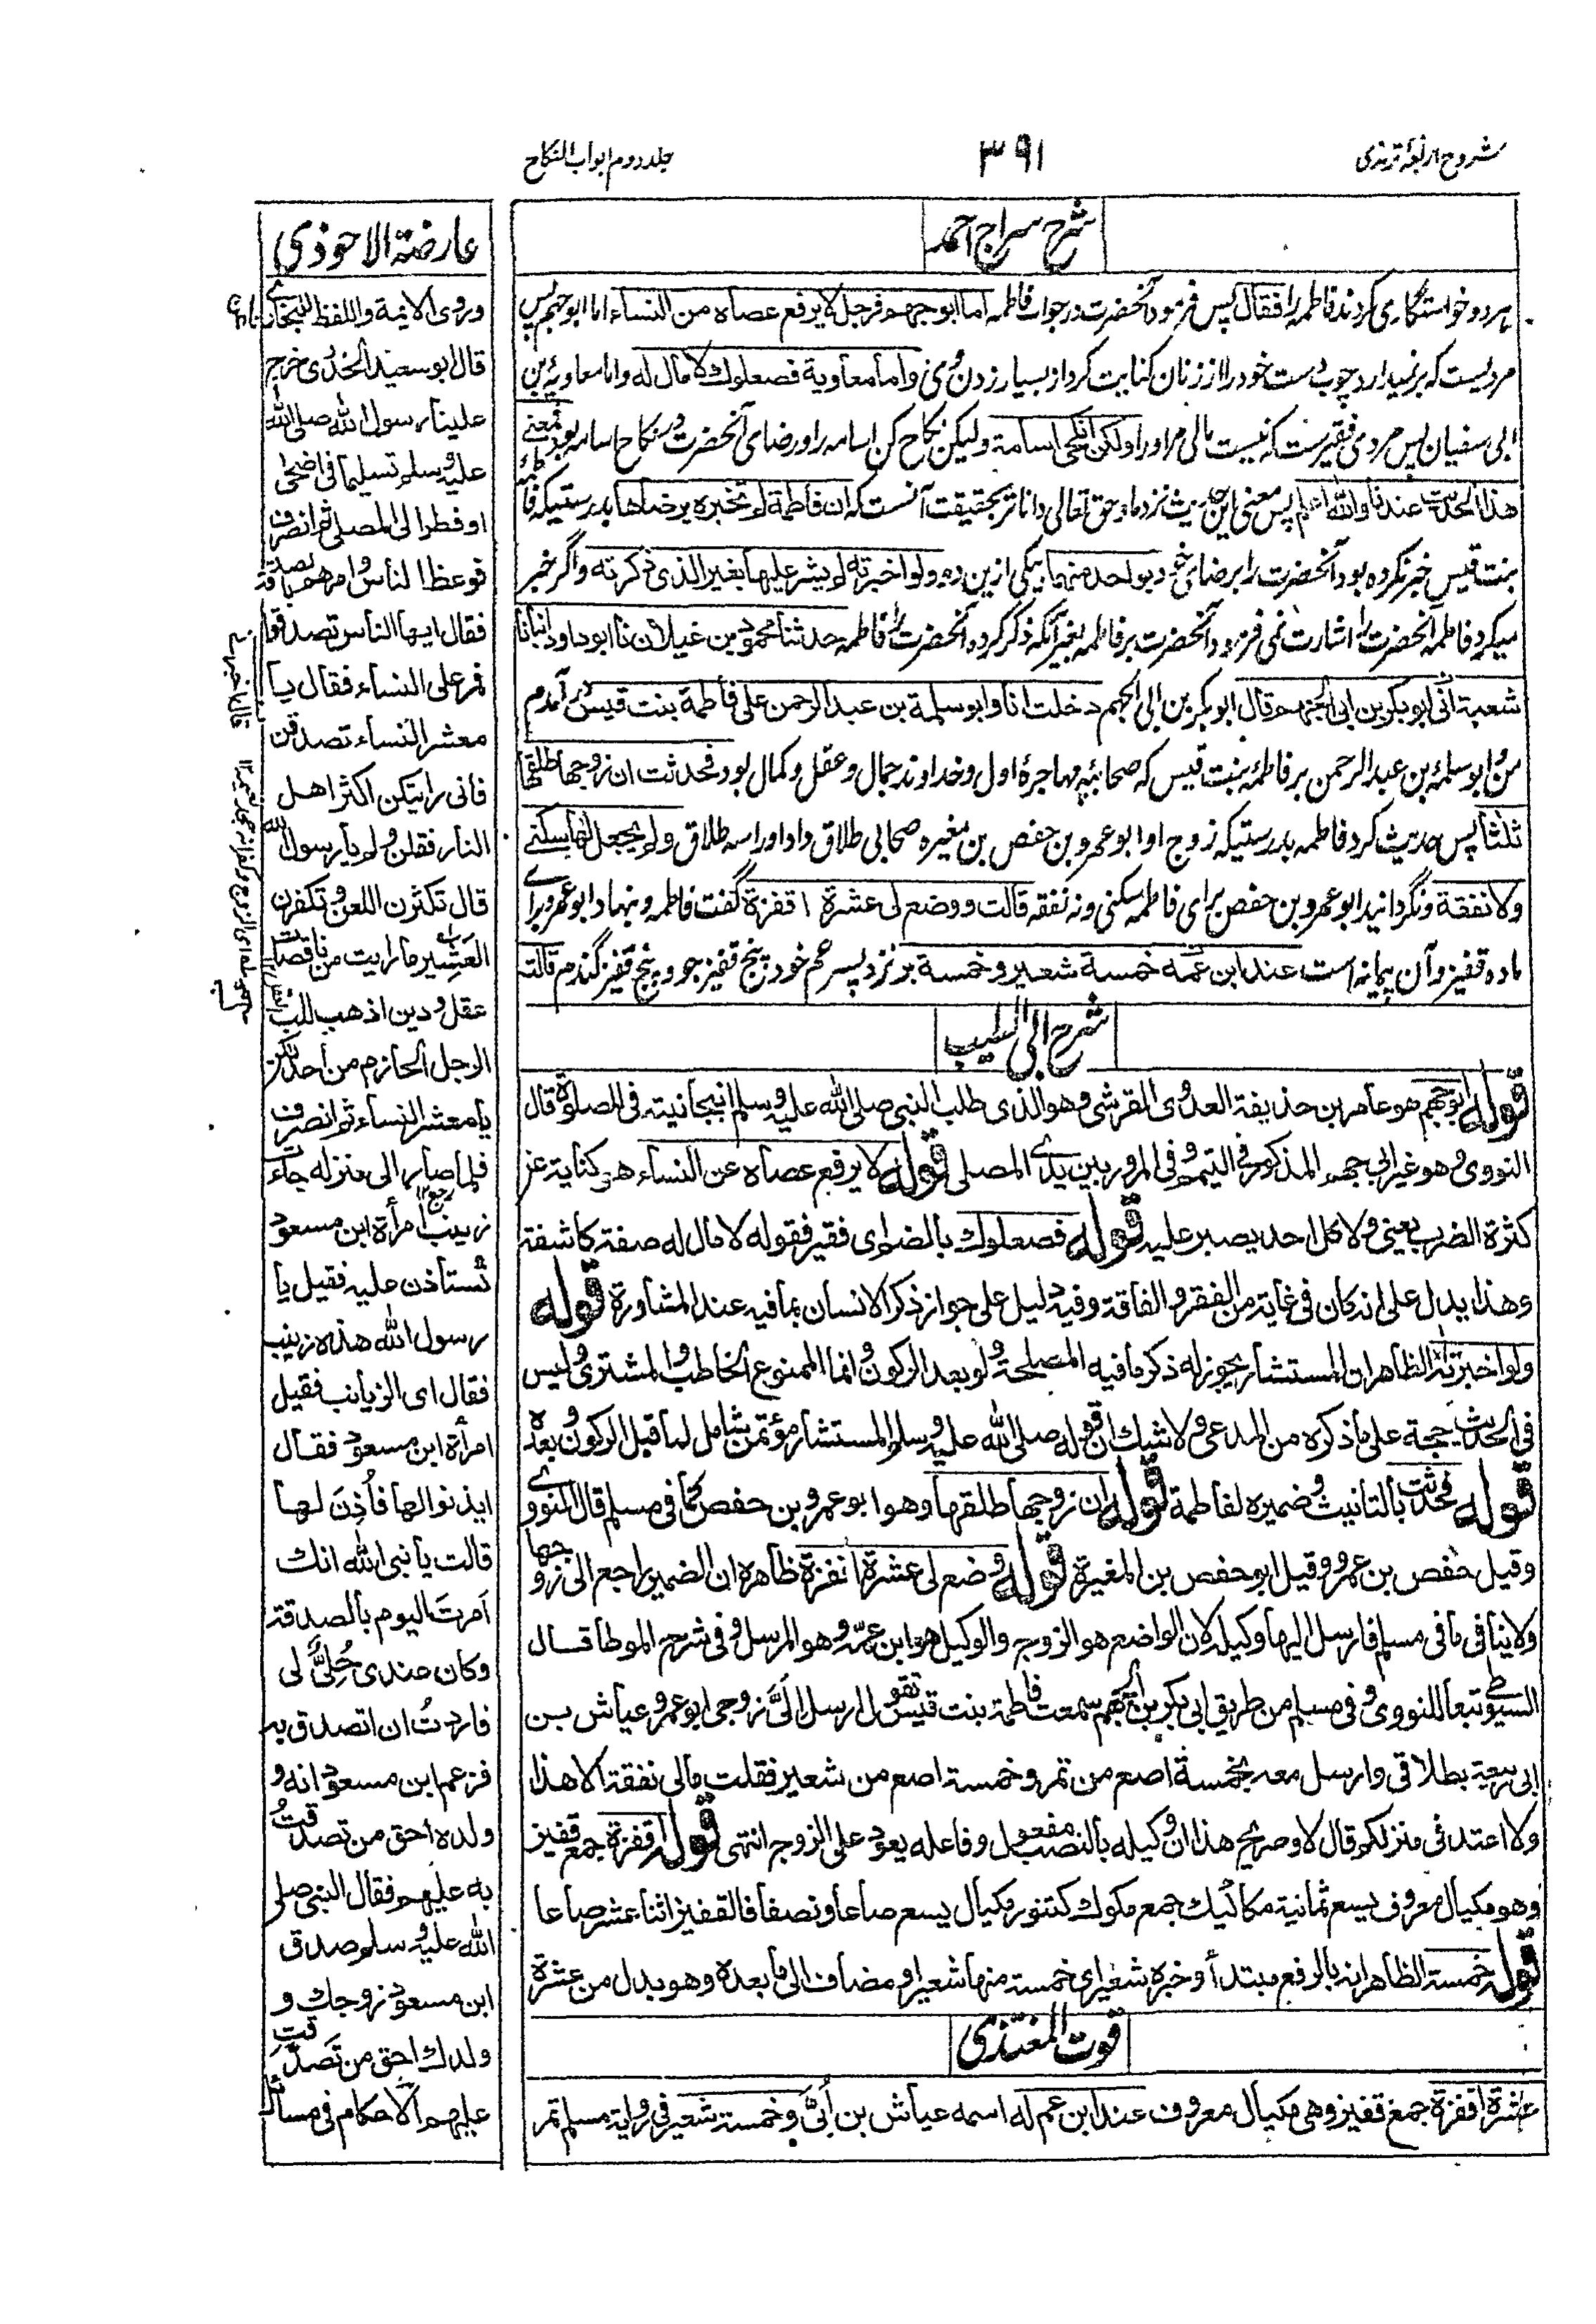 شروح اربعۂ ترمذی
۳۹۱
جلد دوم ابواب النکاح
شرح سراج احمد
ہر دو خواستگاری کردند فاطمہ را فقال پس فرمود آنحضرت در جواب فاطمہ اما ابو جهم فرجل لا یرفع عصاه من النساء اما ابو جہم پس
مردیست که بر نمیدارد چوب دست خود را از زنان کنایت کرد از بسیار زدن وی زن واما معاویة فصعلوك لا مال له واما معاویہ بن
ابی سفیان پس مردی فقیرست که نیست مالی مر اورا ولکن انکحی اسامة ولیکن نکاح کن اسامه را ورضای آنحضرت در نکاح اسامه بود فمعنی
هذا الحدیث عندنا والله اعلم پس معنی این حدیث نزد ما وحق تعالی داناتر بحقیقت آنست که ان فاطمة لم تخبره برضاها بدرستیکه فاطمہ
بنت قیس خبر نکرده بود آنحضرت را برضای خود بواحد منهما بیکی ازین دو ولو اخبرته لم یشر علیها بغیر الذی ذکرته واگر خبر
میکرد فاطمہ آنحضرت را اشارت نمی فرمود آنحضرت بر فاطمہ بغیر آنکه ذکر کرده آنحضرت را فاطمہ حدثنا محمود بن غیلان نا ابو داود انبانا
شعبة انی ابو بکر بن ابی الجهم قال ابو بکر بن ابی الجهم دخلت انا وابو سلمة بن عبد الرحمن علی فاطمة بنت قیس در آمدم
من وابو سلمہ بن عبد الرحمن بر فاطمہ بنت قیس که صحابیہ ومهاجرهٔ اول وخداوند جمال وعقل وکمال بود فحدثت ان زوجها طلقها
ثلثا پس حدیث کرد فاطمہ بدرستیکه زوج او ابو عمرو بن حفص بن مغیره صحابی طلاق داد اورا سه طلاق ولم یجعل لها سکنی
ولا نفقة ونگردانید ابو عمرو بن حفص برای فاطمہ سکنی ونه نفقه قالت ووضع لی عشرة اقفزة گفت فاطمہ ونهاد ابو عمرو برای
ما ده قفیز وآن پیمانه است عند ابن عمه خمسة شعیر وخمسة بر نزد پسر عم خود پنج قفیز جو وپنج قفیز گندم قالت
شرح ابی الطیب
قوله ابو جهم هو عامر بن حذیفة العدوی القرشی وهو الذی طلب النبی صلی الله علیه وسلم انبجانیته فی الصلوة قال
النووی وهو غیر ابی جهم المذکور فی التیمم وفی المرور بین یدی المصلی قوله لا یرفع عصاه عن النساء هو کنایة عن
کثرة الضرب یعنی ولا کل احد یصبر علیه قوله فصعلوك بالضم ای فقیر فقوله لا مال له صفة کاشفة
وهذا یدل علی انه کان فی غایة من الفقر والفاقة وفیه دلیل علی جواز ذکر الانسان بما فیه عند المشاورة قوله
ولو اخبرته الظاهر ان المستشار یجوز له ذکر ما فیه المصلحة ولو بعد الرکون وانما الممنوع الخاطب والمشتری ولیس
فی الحدیث حجة علی ما ذکره من المدعی ولا شك ان قوله صلی الله علیه وسلم المستشار مؤتمن شامل لما قبل الرکون وبعده
قوله فحدثت بالتانیث وضمیره لفاطمة قوله ان زوجها طلقها وهو ابو عمرو بن حفص کما فی مسلم قال النووی
وقیل حفص بن عمرو وقیل ابو حفص بن المغیرة قوله وضع لی عشرة اقفزة ظاهره ان الضمیر راجع الی زوجها
ولا ینافی ما فی مسلم فارسل الیها وکیله لان الواضع هو الزوج والوکیل هو ابن عمه وهو المرسل وفی شرح الموطأ قال
السیوطی تبعا للنووی وفی مسلم من طریق ابی بکر بن ابی الجهم سمعت فاطمة بنت قیس تقول ارسل الیّ زوجی ابو عمرو عیاش بن
ابی ربیعة بطلاقی وارسل معه بخمسة اصع من تمر وخمسة اصع من شعیر فقلت مالی نفقة الا هذا
ولا اعتد فی منزلکم قال لا وصریح هذا ان وکیله بالنصب مفعول وفاعله یعود علی الزوج انتهی قوله اقفزة جمع قفیز
وهو مکیال معروف یسع ثمانیة مکاکیك جمع مکوك کتنور مکیال یسع صاعا ونصفا فالقفیز اثنا عشر صاعا
قوله خمسة الظاهر انه بالرفع مبتدأ وخبره شعیر ای خمسة منها شعیر او مضاف الی ما بعده وهو بدل من عشرة
قوت المغتذی
عشرة اقفزة جمع قفیز وهی مکیال معروف عند ابن عم له اسمه عیاش بن ابیّ وخمسة شعیر فی روایة مسلم تمر
عارضة الاحوذی
وروی الائمة واللفظ للبخاری
قال ابو سعید الخدری خرج
علینا رسول الله صلی الله
علیه وسلم تسلیما فی اضحی
او فطر الی المصلی ثم انصرف
فوعظ الناس وامرهم بالصدقة
فقال ایها الناس تصدقوا
فمر علی النساء فقال یا
معشر النساء تصدقن
فانی رایتکن اکثر اهل
النار فقلن ولم یا رسول الله
قال تکثرن اللعن وتکفرن
العشیر ما رایت من ناقصات
عقل ودین اذهب للب
الرجل الحازم من احداکن
یا معشر النساء ثم انصرف
فلما صار الی منزله جاءت
زینب امرأة ابن مسعود
تستأذن علیه فقیل یا
رسول الله هذه زینب
فقال ای الزیانب فقیل
امرأة ابن مسعود فقال
ایذنوا لها فأُذِنَ لها
قالت یا نبی الله انك
اَمرتَ الیوم بالصدقة
وکان عندی حُلِیٌّ لی
فاردتُ ان اتصدق به
فزعم ابن مسعود انه و
ولده احق من تصدقتُ
به علیهم فقال النبی صلی
الله علیه وسلم صدق
ابن مسعود زوجك و
ولدك احق من تصدقتِ
علیهم الاحکام فی مسألة